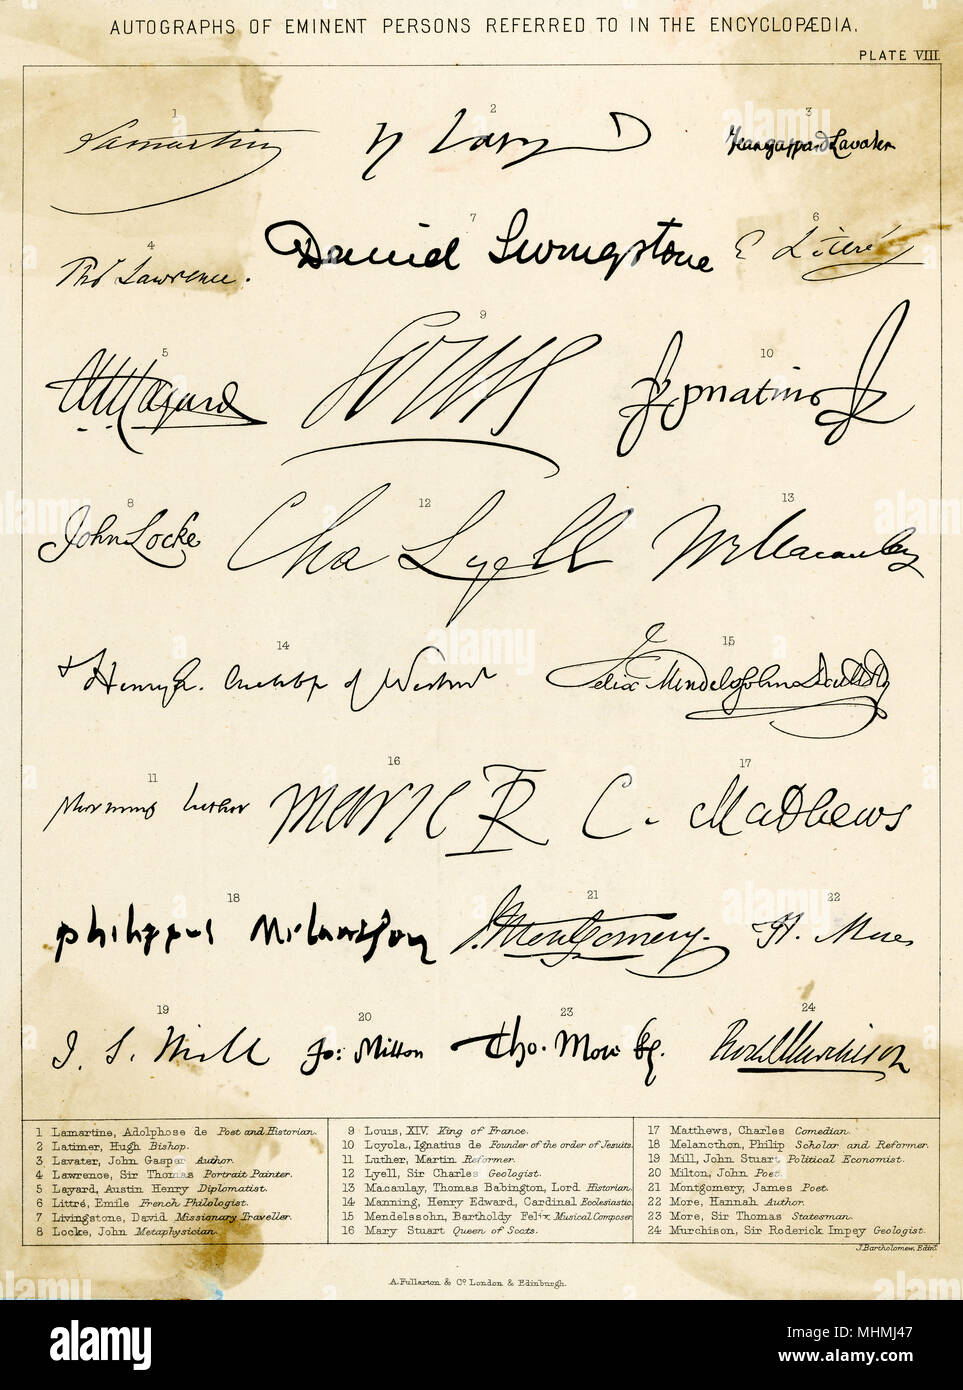 AUTOGRAPHS OF EMINENT PERSONS REFERRED TO IN THE ENCYCLOPÆDIA.
PLATE VIII
1 2 3
Lamartine
Lavater
4 7 6
Tho^s Lawrence.
David Livingstone
E Littré
5 9 10
A H Layard
Louis
Ignatius
8 12 13
John Locke
Cha Lyell
Macaulay
14 15
+ Henry E. of
Felix Mendelssohn Bartholdy
11 16 17
Luther
MARIE R
C. Mathews
18 21 22
philippus Melanthon
J. Montgomery.
H. More
19 20 23 24
J. S. Mill
Jo: Milton
Tho. More kg.
Rod Murchison
1 Lamartine, Adolphose de Poet and Historian.
2 Latimer, Hugh Bishop.
3 Lavater, John Gasper Author.
4 Lawrence, Sir Thomas Portrait Painter.
5 Layard, Austin Henry Diplomatist.
6 Littré, Emile French Philologist.
7 Livingstone, David Missionary Traveller.
8 Locke, John Metaphysician.
9 Louis, XIV. King of France.
10 Loyola, Ignatius de Founder of the order of Jesuits.
11 Luther, Martin Reformer.
12 Lyell, Sir Charles Geologist.
13 Macaulay, Thomas Babington, Lord Historian.
14 Manning, Henry Edward, Cardinal Ecclesiastic.
15 Mendelssohn, Bartholdy Felix Musical Composer.
16 Mary Stuart Queen of Scots.
17 Matthews, Charles Comedian.
18 Melancthon, Philip Scholar and Reformer.
19 Mill, John Stuart Political Economist.
20 Milton, John Poet.
21 Montgomery, James Poet.
22 More, Hannah Author.
23 More, Sir Thomas Statesman.
24 Murchison, Sir Roderick Impey Geologist.
J. Bartholomew, Edin^r.
A. Fullarton & C^o. London & Edinburgh.
alamy
Image ID: MHMJ47
www.alamy.com